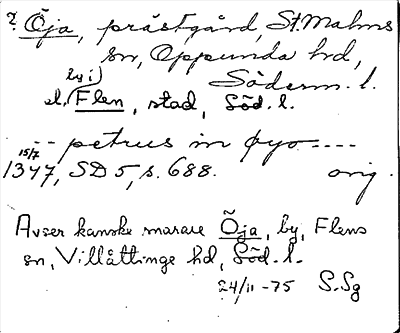 ? Öja, prästgård, St. Malms
sn, Oppunda hd,
Söderm. l.
by i
el. Flen, stad, Söd. l.
-- petrus in øyo ----
15/7
1347, SD 5, s. 688. orig.
Avser kanske snarare Öja, by, Flens
sn, Villåttinge hd, Söd. l.
24/11 -75 S.Sg